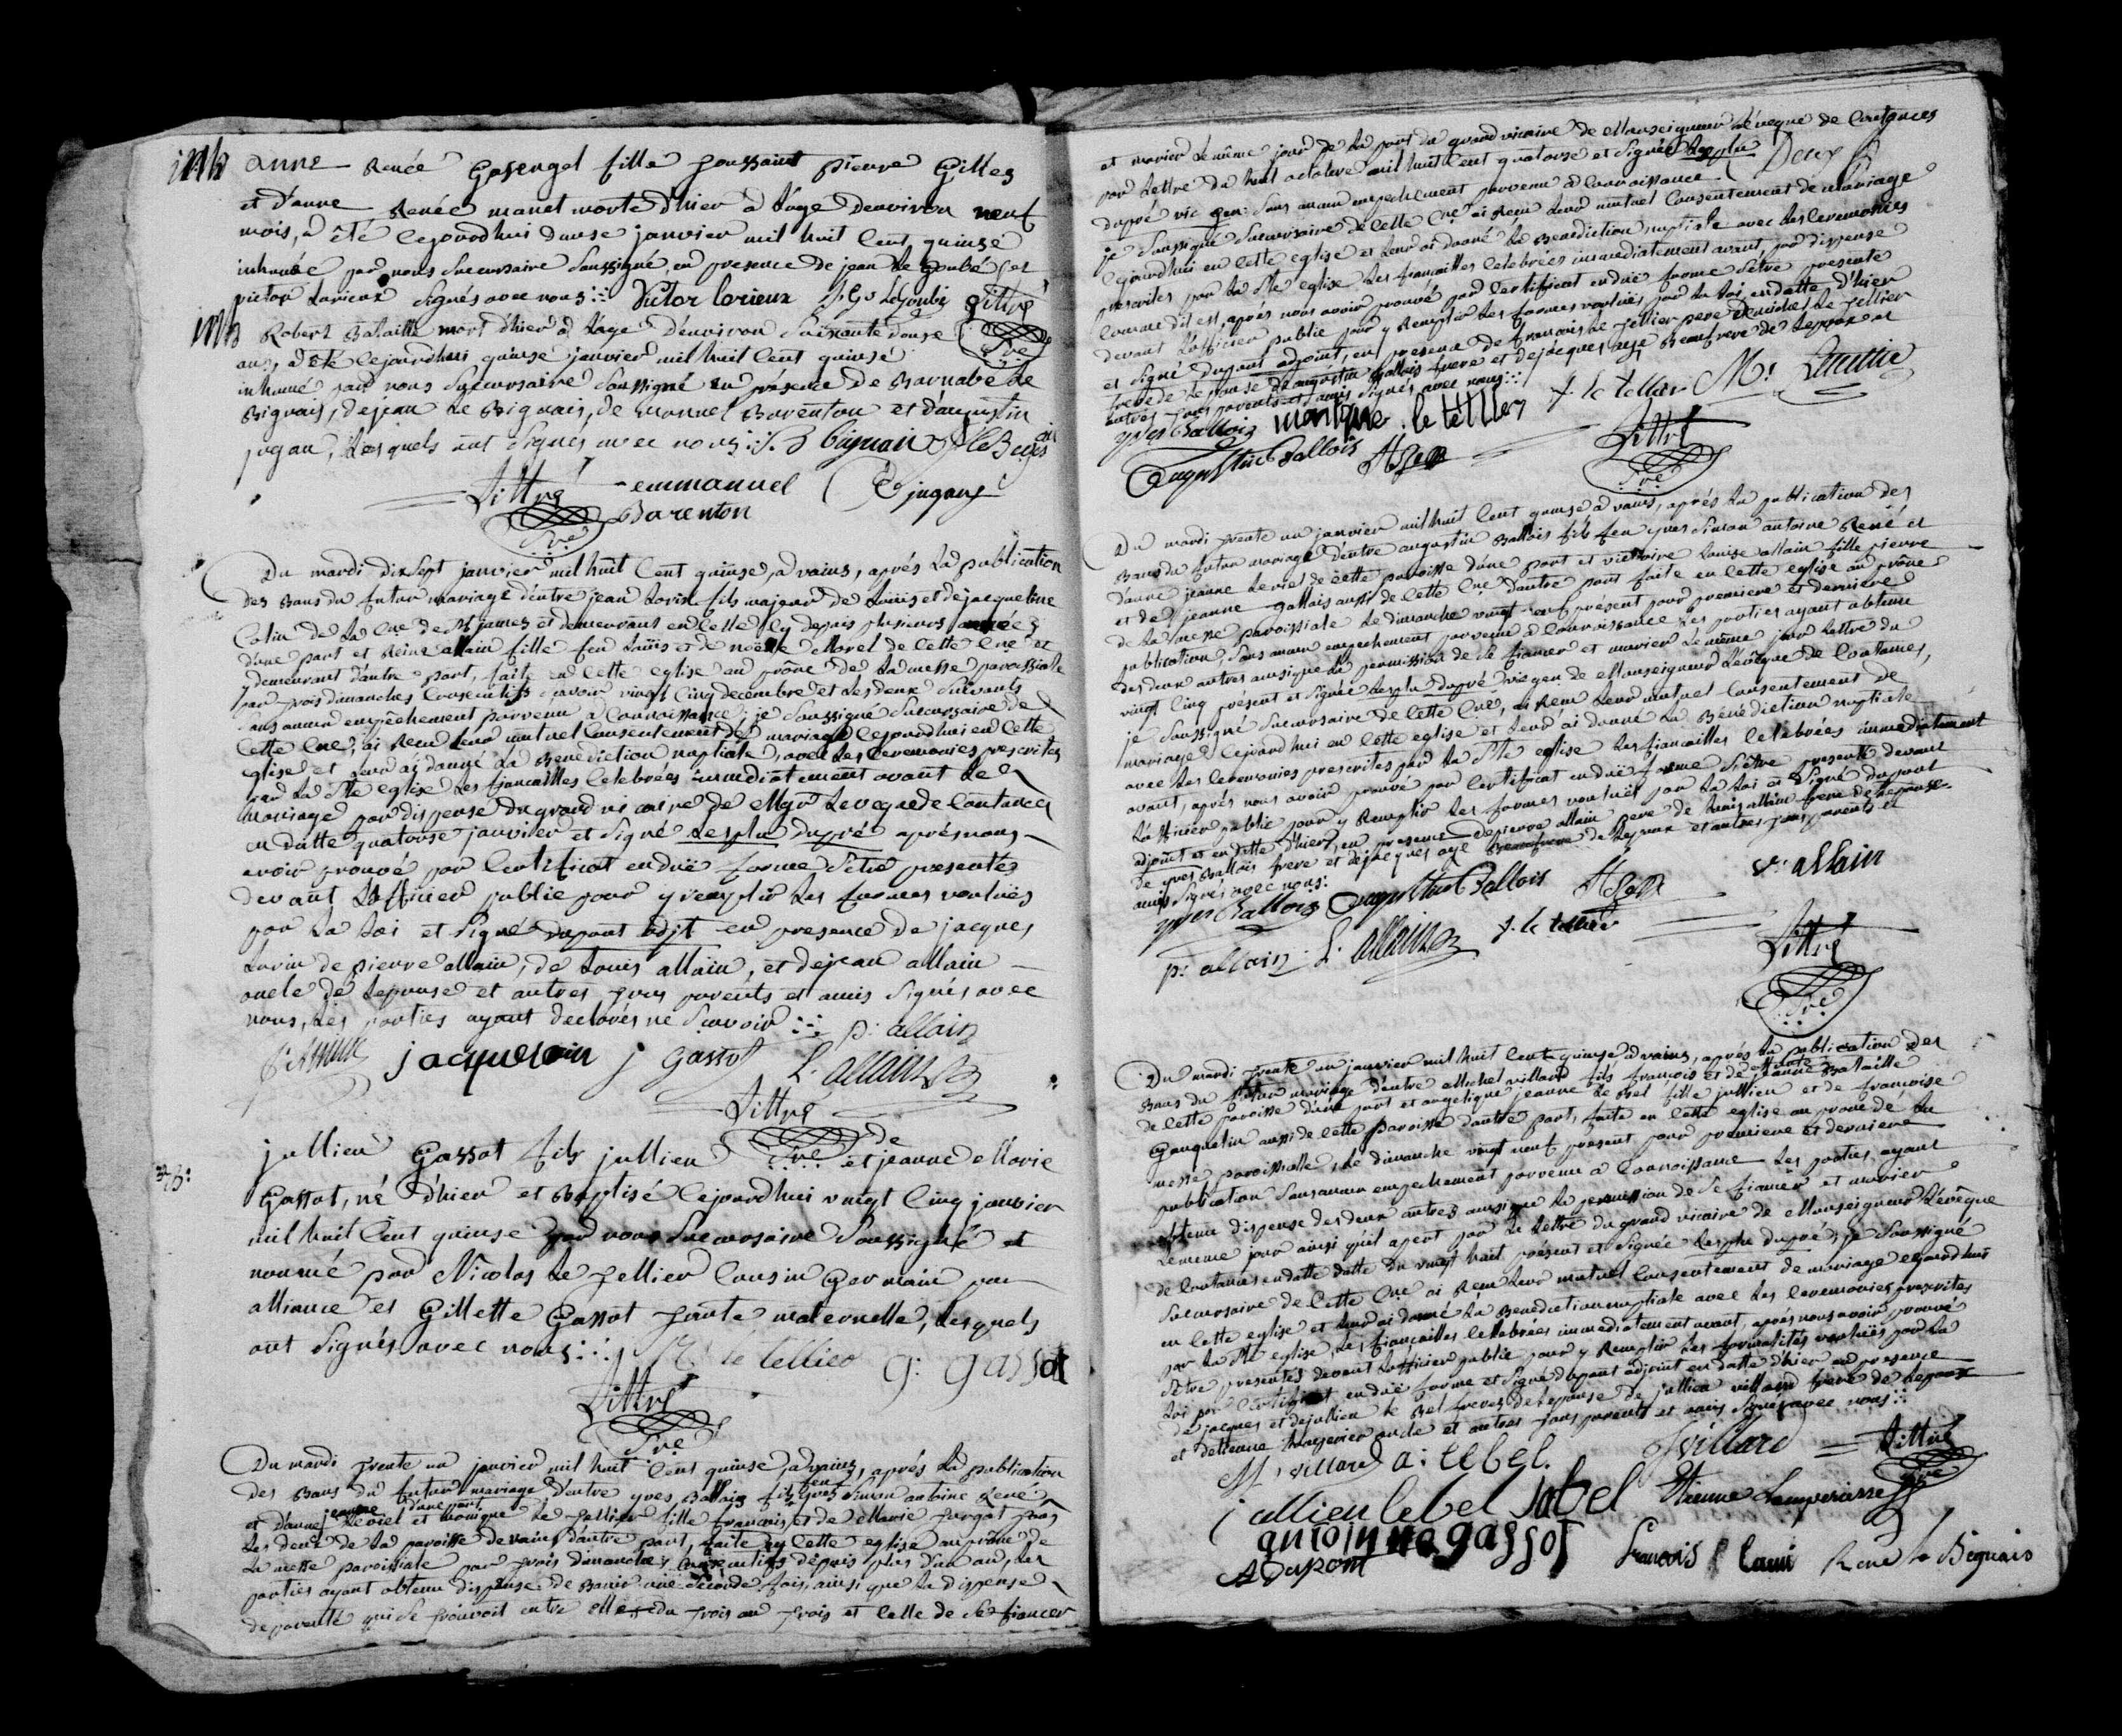 inh anne Renée Gosengel fille toussaint pierre Gilles
et d'anne Renée manet morte d'hier à l'age d'environ neuf
mois, a été cejourdhui douse janvier mil huit cent quinse
inhumée par nous succursaire soussigné, en presence de jean Le Goubé et
victor Lorieux signés avec nous victor lorieux Littré
inh Robert Bataille mort d'hier à l'age d'environ soixante douse
ans, a été cejourdhui quinse janvier mil huit cent quinse
inhumé par nous succursaire soussigné en présence de Barnabé Le
Bignais, de jean Le Bignais, de manuel Barenton et d'augustin
jugan, Lesquels ont signés avec nous
Littré emmanuel jugan
Barenton
Du mardi dix sept janvier mil huit cent quinse, a vains, aprés La publication
des Bans du futur mariage d'entre jean Lorin fils majeur de Louis et de jacqueline
Colin de La Cne de St james et demeurant en celle cy depuis plusieurs années
d'une part et Reine allain fille feu Louis et de noëlle Morel de cette Cne et
y demeurant d'autre part, faite en cette eglise au prône de La messe paroissiale
par trois dimanches consecutifs savoir vingt cinq decembre et Les deux suivants
sans aucun empêchement parvenu à connoissance; je soussigné succursaire de
cette Cne, ai Recu Leur mutuel consentement de mariage cejourdhui en cette
eglise et Leur ai donné La Benediction nuptiale, avec Les ceremonies prescrites
par La Ste eglise Les fiancailles celebrées immediatement avant Le
mariage par dispense du grand vicaire de Mgr Leveque de Coutances
en datte quatorse janvier et signé Lesplu dupré aprés nous
avoir prouvé par Certificat en duë forme s'etre presentés
devant L'officier public pour y remplir Les formes vouluës
par La Loi et signé dupont adjt en presence de jacques
Lorin de pierre allain, de Louis allain, et de jean allain
oncle de L'epouse et autres tous parents et amis signés avec
nous, Les parties ayant declarés ne scavoir p: allain
j gassot L: allain
Littré
jullien Gassot fils jullien et de jeanne Marie
Gassot, né d'hier et Baptisé cejourdhui vingt cinq janvier
mil huit cent quinse par nous succursaire soussigné et
nommé par Nicolas Le tellier cousin Germain par
alliance et Gillette Gassot tante maternelle, Lesquels
ont signés avec nous le tellier g: gassot
Littré
Du mardi trente un janvier mil huit cent quinse, a vains, aprés La publication
des Bans du futur mariage d'entre yves Ballois fils feu yves simon antoine René
et d'anne jeanne Leviel d'une part et monique Le tellier fille francois et de Marie turgot tous
Les deux de La paroisse de vains d'autre part, faite en cette eglise au prône de
La messe paroissiale par trois dimanches consecutifs depuis plus d'un an, Les
parties ayant obtenu dispense de Banir une seconde fois, ainsi que La dispense
de parenté qui se trouvoit entre elles du trois au trois et celle de se fiancer
et marier Le même jour de La part du grand vicaire de Monseigneur L'évêque de Coutances
par Lettre du huit octobre mil huit cent quatorse et signée Lesplu
dupré vic gen: sans aucun empechement parvenu à connoissance
je soussigné succursaire de cette Cne ai Recu Leur mutuel consentement de mariage
cejourdhui en cette eglise et Leur ai donné La Benediction nuptiale avec Les ceremonies
prescrites par La Ste eglise Les fiancailles celebrées immediatement avant par dispense
comme dit est, aprés nous avoir prouvé par Certificat en duë forme s'être presente
devant L'officier public pour y Remplir Les formes vouluës par La Loi en datte d'hier
et signé dupont adjoint, en presence de francois Le tellier pere de michel Le tellier
frere de L'epouse de augustin Ballois frere et de jacques age Beaufrere de L'epoux et
autres tous parents et amis signés avec nous
yves Ballois monique le tellier f. le tellier
augustin Ballois Littré
Du mardi trente un janvier mil huit cent quinse à vains, aprés La publication des
Bans du futur mariage d'entre augustin Ballois fils feu yves simon antoine René et
d'anne jeanne Leviel de cette paroisse d'une part et victoire Louise allain fille pierre
et de jeanne gallais aussi de cette Cne d'autre part faite en cette eglise au prône
de La messe paroissiale Le dimanche vingt neuf présent pour premiere et derniere
publication, sans aucun empechement parvenu à connoissance Les parties ayant obtenu
des deux autres ainsi que La permission de se fiancer et marier Le même jour Lettre du
vingt cinq présent et signée Lesplu dupré vic gen de Monseigneur L'évêque de Coutances,
je soussigné succursaire de cette Cne, ai Recu Leur mutuel consentement de
mariage cejourdhui en cette eglise et Leur ai donné La Bénédiction nuptiale
avec Les ceremonies prescrites par La Ste eglise Les fiancailles celebrées immediatement
avant, aprés nous avoir prouvé par Certificat en duë forme s'etre presenté devant
L'officier public pour y Remplir Les formes vouluës par La Loi et signé dupont
adjoint et en datte d'hier, en presence de pierre allain pere de Louis allain frere de L'epouse
de yves Ballois frere et de jacques age Beaufrere de L'epoux et autres tous parents et
amis signés avec nous:
yves Ballois augustin Ballois v: allain
p: allain L: allain f. le tellier Littré
Du mardi trente un janvier mil huit cent quinse a vains, aprés La publication des
Bans du futur mariage d'entre Michel villard fils francois et de jeanne Bataille
de cette paroisse d'une part et angelique jeanne Le Bel fille jullien et de francoise
Gauquelin aussi de cette paroisse d'autre part, faite en cette eglise au prone de La
messe paroissiale, Le dimanche vingt neuf present pour premiere et derniere
publication sans aucun empechement parvenu a connoissance Les parties ayant
obtenu dispense des deux autres ainsi que La permission de se fiancer et marier
Le même jour ainsi qu'il apert par La Lettre du grand vicaire de Monseigneur L'évêque
de Coutances en datte datte du vingt huit présent et signée Lesplu dupré; je soussigné
succursaire de cette Cne ai Recu Leur mutuel consentement de mariage cejourdhui
en cette eglise et Leur ai donné La Benediction nuptiale avec Les ceremonies prescrites
par La Ste eglise Les fiançailles celebrées immediatement avant, aprés nous avoir prouvé
s'etre presentés devant L'officier public pour y Remplir Les formalités vouluës par La
Loi par Certificat en duë forme et signé dupont adjoint en datte d'hier en presence
de jacques et de jullien Le Bel freres de L'epouse de jullien villard frere de L'epoux
et d'etienne oncle et autres tous parents et amis signés avec nous
M. villard a: lebel. J villard Littré
jullien lebel lebel Etienne Lamperiere
antoinne gassot francois lami René le Bignais
A Dupont